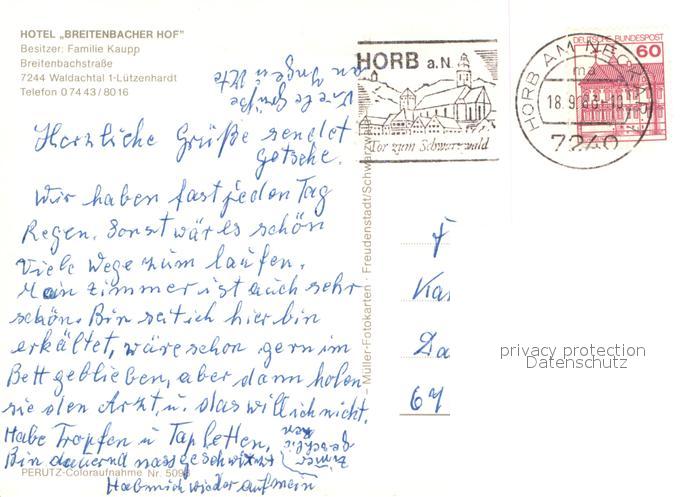 HOTEL „BREITENBACHER HOF"
Besitzer: Familie Kaupp
Breitenbachstraße
7244 Waldachtal 1-Lützenhardt
Telefon 0 74 43 / 80 16
Viele Grüße
an Jürgen u Ute
HORB a.N.
Tor zum Schwarzwald
HORB AM NECKAR
ma
18.9.
7240
DEUTSCHE BUNDESPOST
60
Herzliche Grüße sendet
Gotsche.
Wir haben fast jeden Tag
Regen. Sonst wär es schön
Viele Wege zum laufen.
Mein Zimmer ist auch sehr
schön. Bin seit ich hier bin
erkältet, wäre schon gern im
Bett geblieben, aber dann holen
sie den Arzt u. das will ich nicht.
Habe Tropfen u Tapletten.
Bin dauernd nassgeschwitzt
Hab mich wieder auf mein
Zimmer
geschli
chen
– Müller-Fotokarten · Freudenstadt/Schwarzwald
PERUTZ-Coloraufnahme Nr. 509
F
Kar
Da
67
privacy protection
Datenschutz